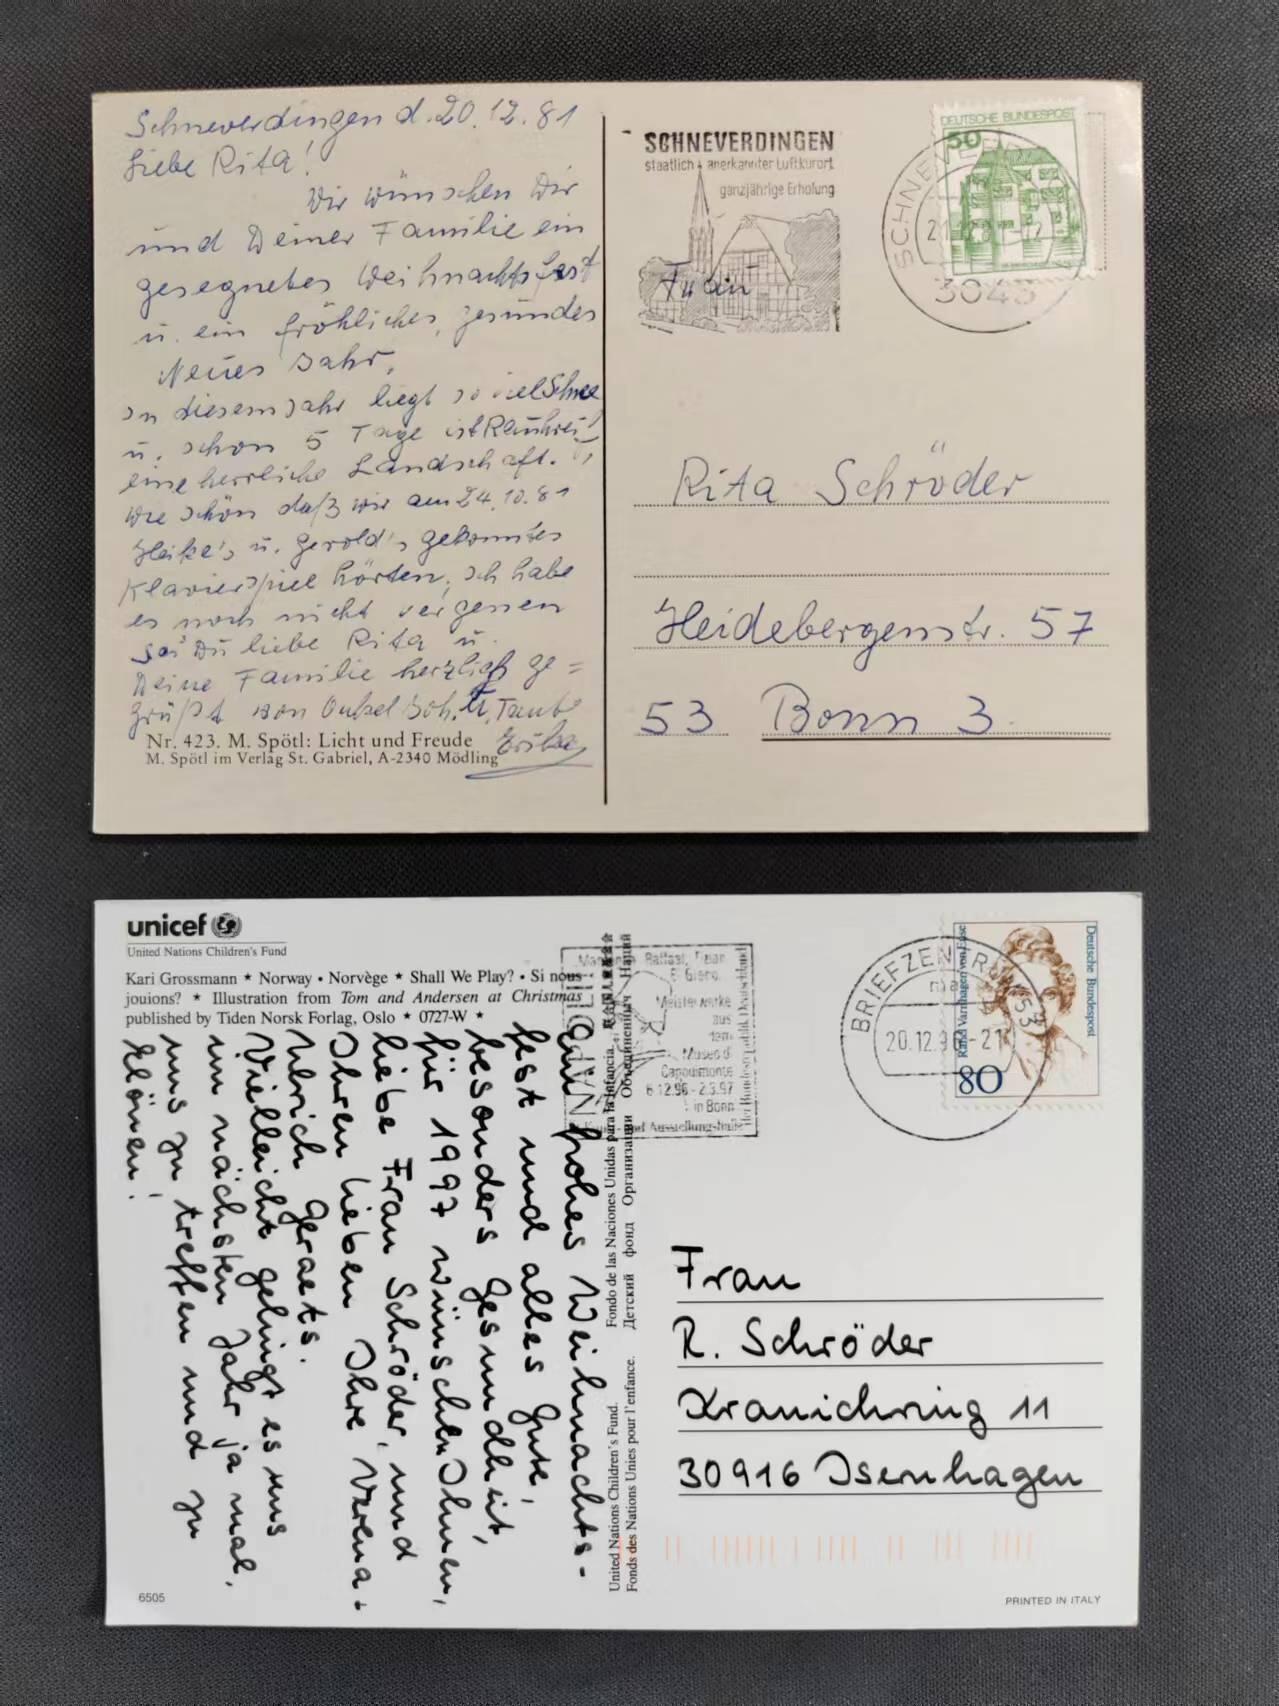 Schneverdingen d. 20.12.81
Liebe Rita!
Wir wünschen Dir
und Deiner Familie ein
gesegnetes Weihnachtsfest
u. ein fröhliches, gesundes
Neues Jahr.
In diesem Jahr liegt so viel Schnee
u. schon 5 Tage ist Rauhreif,
eine herrliche Landschaft.
Wie schön daß wir am 24.10.81
Heike's u. Gerold's gekonntes
Klavierspiel hörten, ich habe
es noch nicht vergessen
Sei Du liebe Rita u.
Deine Familie herzlich ge=
grüßt von Onkel Joh. u. Tante
Erika
Nr. 423. M. Spötl: Licht und Freude
M. Spötl im Verlag St. Gabriel, A-2340 Mödling
SCHNEVERDINGEN
staatlich anerkannter Luftkurort
ganzjährige Erholung
DEUTSCHE BUNDESPOST
50
SCHNEVER
3043
Frau
Rita Schröder
Heidebergenstr. 57
53 Bonn 3
unicef
United Nations Children's Fund
Kari Grossmann ★ Norway • Norvège ★ Shall We Play? • Si nous
jouions? ★ Illustration from Tom and Andersen at Christmas
published by Tiden Norsk Forlag, Oslo ★ 0727-W ★
Ein frohes Weihnachts-
fest und alles Gute,
besonders Gesundheit,
für 1997 wünschen Ihnen,
liebe Frau Schröder, und
Ihren Lieben Ihre Verena +
Ulrich Geraets.
Vielleicht gelingt es uns
im nächsten Jahr ja mal,
uns zu treffen und zu
klönen!
6505
United Nations Children's Fund. Fondo de las Naciones Unidas para la Infancia. 联合国儿童基金会
Fonds des Nations Unies pour l'enfance. Детский фонд Организации Объединенных Наций
Meisterwerke
aus
dem
Museo di
Capodimonte
6.12.96 - 2.3.97
in Bonn
der Bundesrepublik Deutschland
BRIEFZENTRUM 53
20.12.96-21
Deutsche Bundespost
Rahel Varnhagen von Ense
80
Frau
R. Schröder
Kranichring 11
30916 Isernhagen
PRINTED IN ITALY